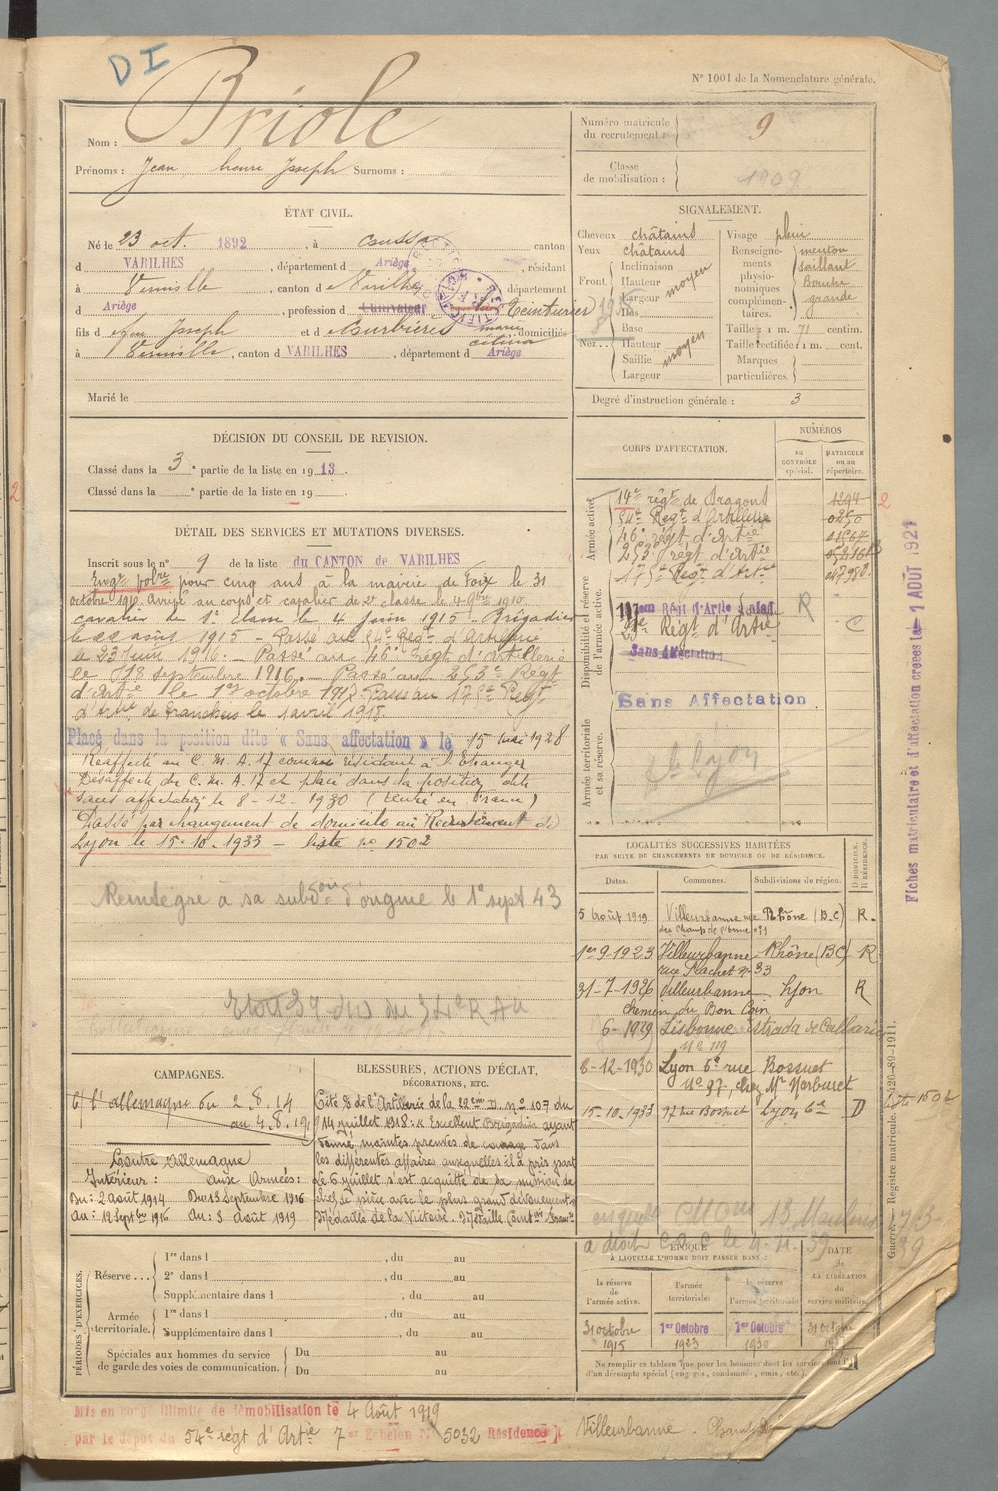 DI
N° 1001 de la Nomenclature générale.
Nom : Briole
Prénoms : Jean henri Joseph Surnoms :
Numéro matricule du recrutement : 9
Classe de mobilisation : 1909
ÉTAT CIVIL.
Né le 23 oct. 1892, à Coussa canton
d VARILHES, département d Ariège, résidant
à Vernille, canton d Varilhes département
d Ariège, profession d Cultivateur Teinturier
fils d Joseph et d Courbières marie célina domiciliés
à Vernille, canton d VARILHES, département d Ariège
Marié le
SIGNALEMENT.
Cheveux châtains
Yeux châtains
Front. Inclinaison
Hauteur
Largeur
moyen
Nez. Dos
Base
Hauteur
Saillie
Largeur
moyen
Visage plein
Renseignements physionomiques complémentaires.
menton saillant
Bouche grande
Taille : 1 m. 71 centim.
Taille rectifiée : 1 m. cent.
Marques particulières.
Degré d'instruction générale : 3
DÉCISION DU CONSEIL DE REVISION.
Classé dans la 3e partie de la liste en 1913.
Classé dans la e partie de la liste en 19
DÉTAIL DES SERVICES ET MUTATIONS DIVERSES.
Inscrit sous le n° 9 de la liste du CANTON de VARILHES
Engé volre pour cinq ans à la mairie de Foix le 31
octobre 1910. Arrivé au corps et cavalier de 2e classe le 4 9bre 1910
cavalier de 1e classe le 4 juin 1915 - Brigadier
le 22 août 1915 - Passé au 54e Regt d'Artillerie
le 23 Juin 1916. - Passé au 46e Régt d'artillerie
le 13 septembre 1916. - Passé au 253e Régt
d'Artie le 1er octobre 1917. Passé au 175e Regt
d'artie de tranchées le 1 avril 1918.
Placé dans la position dite « Sans affectation » le 15 mai 1928
Réaffecté au C. M. A. 17 comme résidant à l'Etranger
Désaffecté du C. M. A. 17 et placé dans la position dite
sans affectation le 8-12-1930 (rentré en France)
Passé par changement de domicile au Recrutement de
Lyon le 15.10.1933 - liste no 1502
Réintégré à sa subdon d'origine le 1e sept 43
CORPS D'AFFECTATION.
NUMÉROS
au CONTRÔLE spécial.
MATRICULE ou au répertoire.
Armée active.
14e régt de Dragons 1294
54e Regt d'Artillerie 0250
46e regt d'Artie
253e regt d'Artie
175e Regt d'Artie
Disponibilité et réserve de l'armée active.
Régt d'Artie R
Regt d'Artie C
Sans Affectation
Sans Affectation
Armée territoriale et sa réserve.
Lyon
Fiches matriculaire et d'affectation créées le 1 AOÛT 1921
LOCALITÉS SUCCESSIVES HABITÉES
PAR SUITE DE CHANGEMENTS DE DOMICILE OU DE RÉSIDENCE.
Dates. Communes. Subdivisions de région. D. DOMICILE. R. RÉSIDENCE.
5 août 1919 Villeurbanne rue Rhône (B.C) R.
1er-9-1923 Villeurbanne Rhône (BC) R
rue Flachet n° 33
31-7-1926 Villeurbanne Lyon R
chemin du Bon Coin
6-1929 Lisbonne
n° 119
8-12-1930 Lyon 6e rue Bossuet
n° 97, chez Mr
15-10-1933 97 rue Bossuet Lyon 6e D
liste 1502
CAMPAGNES.
Ct l'allemagne du 2.8.14
au 4.8.19
Contre Allemagne
Intérieur : aux Armées :
Du : 2 août 1914 Du : 13 Septembre 1916
Au : 12 Septbre 1916 Au : 3 août 1919
BLESSURES, ACTIONS D'ÉCLAT,
DÉCORATIONS, ETC.
Cité O de l'Artillerie de la 22eme D. n° 107 du
14 juillet 1918 : « Excellent Brigadier ayant
donné maintes preuves de courage dans
les différentes affaires auxquelles il a pris part
Le 6 juillet s'est acquitté de sa mission de
chef de pièce avec le plus grand dévouement »
Médaille de la Victoire. Médaille Commve
PÉRIODES D'EXERCICES.
Réserve... 1re dans l , du au
2e dans l , du au
Supplémentaire dans l , du au
Armée territoriale. 1re dans l , du au
Supplémentaire dans l , du au
Spéciales aux hommes du service de garde des voies de communication. Du au
Du au
ÉPOQUE
À LAQUELLE L'HOMME DOIT PASSER DANS :
la réserve de l'armée active.
l'armée territoriale.
la réserve de l'armée territoriale.
DATE de LA LIBÉRATION du service militaire.
31 octobre 1915
1er Octobre 1923
1er Octobre 1930
31 octobre
Ne remplir ce tableau que pour les hommes dont les services sont l'objet
d'un décompte spécial (engagés, condamnés, omis, etc.)
Guerre. — Registre matricule. — 426-89-1911.
Mis en congé illimité de démobilisation le 4 Août 1919
par le dépôt du 54e regt d'Artie 7e Echelon N° 5032 Résidence Villeurbanne.